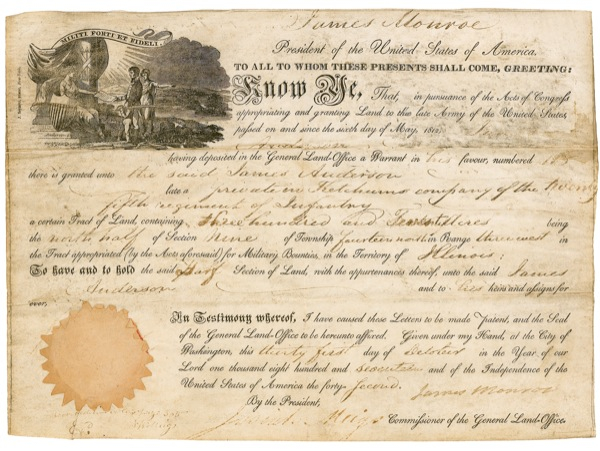 MILITI FORTI ET FIDELI.
James Monroe
President of the United States of America.
TO ALL TO WHOM THESE PRESENTS SHALL COME, GREETING:
Know Ye, That, in pursuance of the Acts of Congress
appropriating and granting Land to the late Army of the United States,
passed on and since the sixth day of May, 1812, James
Anderson
having deposited in the General Land-Office a Warrant in his favour, numbered
there is granted unto the said James Anderson
late a private in Ketchums company of the Twenty
fifth regiment of Infantry
a certain Tract of Land, containing three hundred and Twenty acres being
the north half of Section nine of Township fourteen north in Range three west in
the Tract appropriated (by the Acts aforesaid) for Military Bounties, in the Territory of Illinois:
To have and to hold the said half Section of Land, with the appurtenances thereof, unto the said James
Anderson and to his heirs and assigns for
ever.
In Testimony whereof, I have caused these Letters to be made Patent, and the Seal
of the General Land-Office to be hereunto affixed. Given under my Hand, at the City of
Washington, this thirty first day of October in the Year of our
Lord one thousand eight hundred and seventeen and of the Independence of the
United States of America the forty-second.
James Monroe
By the President,
Josiah Meigs Commissioner of the General Land-Office.